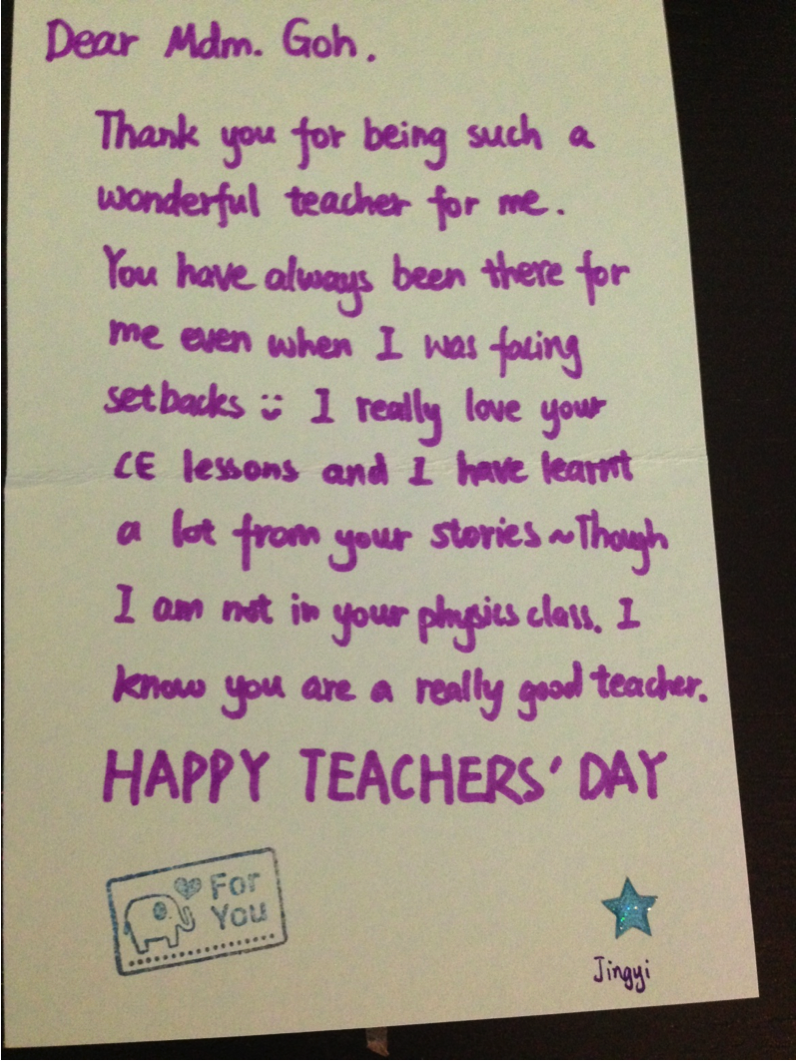 Dear Mdm. Goh.
Thank you for being such a
wonderful teacher for me.
You have always been there for
me even when I was facing
setbacks :) I really love your
CE lessons and I have learnt
a lot from your stories ~ Though
I am not in your physics class. I
know you are a really good teacher.
HAPPY TEACHERS' DAY
For
You
Jingyi